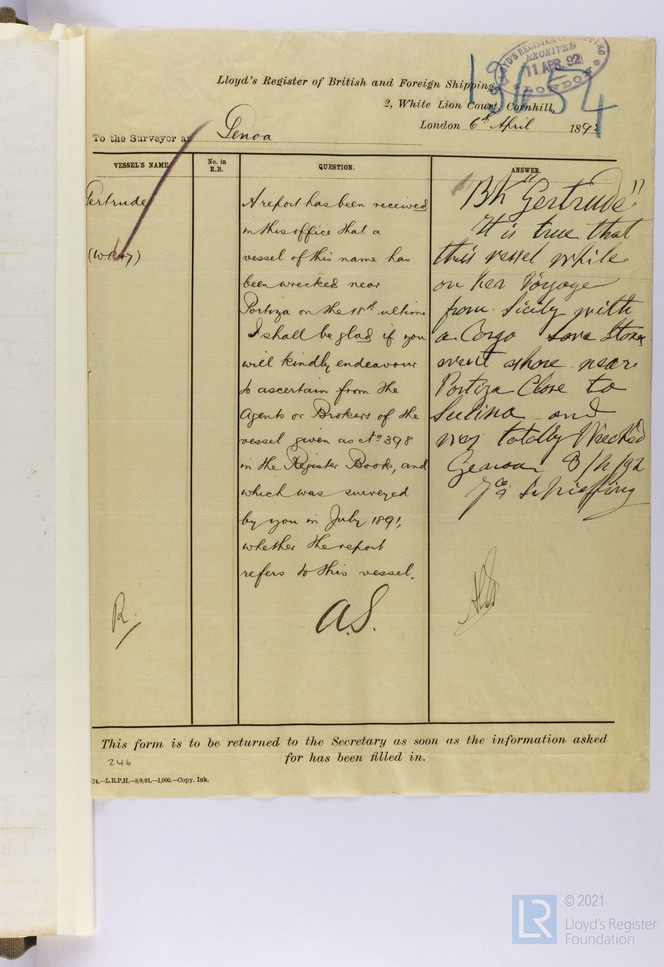 Lloyd's Register of British and Foreign Shipping,
2, White Lion Court, Cornhill,
London 6th April 1892
LLOYD'S REGISTER OF SHIPPING
RECEIVED
11 APR. 92
LONDON
13654
To the Surveyor at Genoa
VESSEL'S NAME.
No. in
R.B.
QUESTION.
ANSWER.
Gertrude
A report has been received
in this office that a
vessel of this name has
been wrecked near
Portiza on the 18th ultimo
I shall be glad if you
will kindly endeavour
to ascertain from the
Agents or Brokers of the
vessel given as No 398
in the Register Book, and
which was surveyed
by you in July 1891,
whether the report
refers to this vessel.
A.S.
R.
"Bk Gertrude"
It is true that
this vessel while
on her Voyage
from Sicily with
a Cargo Lava Stones
went ashore near
Portiza Close to
Sulina and
was totally Wrecked
Genoa 8/4/92
This form is to be returned to the Secretary as soon as the information asked
for has been filled in.
246
74.—L.R.P.H.—8/8/91.—1,000.—Copy. Ink.
LR
© 2021
Lloyd's Register
Foundation